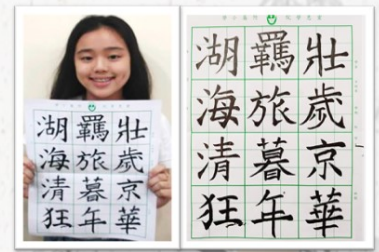 壯歲京華
羈旅暮年
湖海清狂
壯歲京華
羈旅暮年
湖海清狂